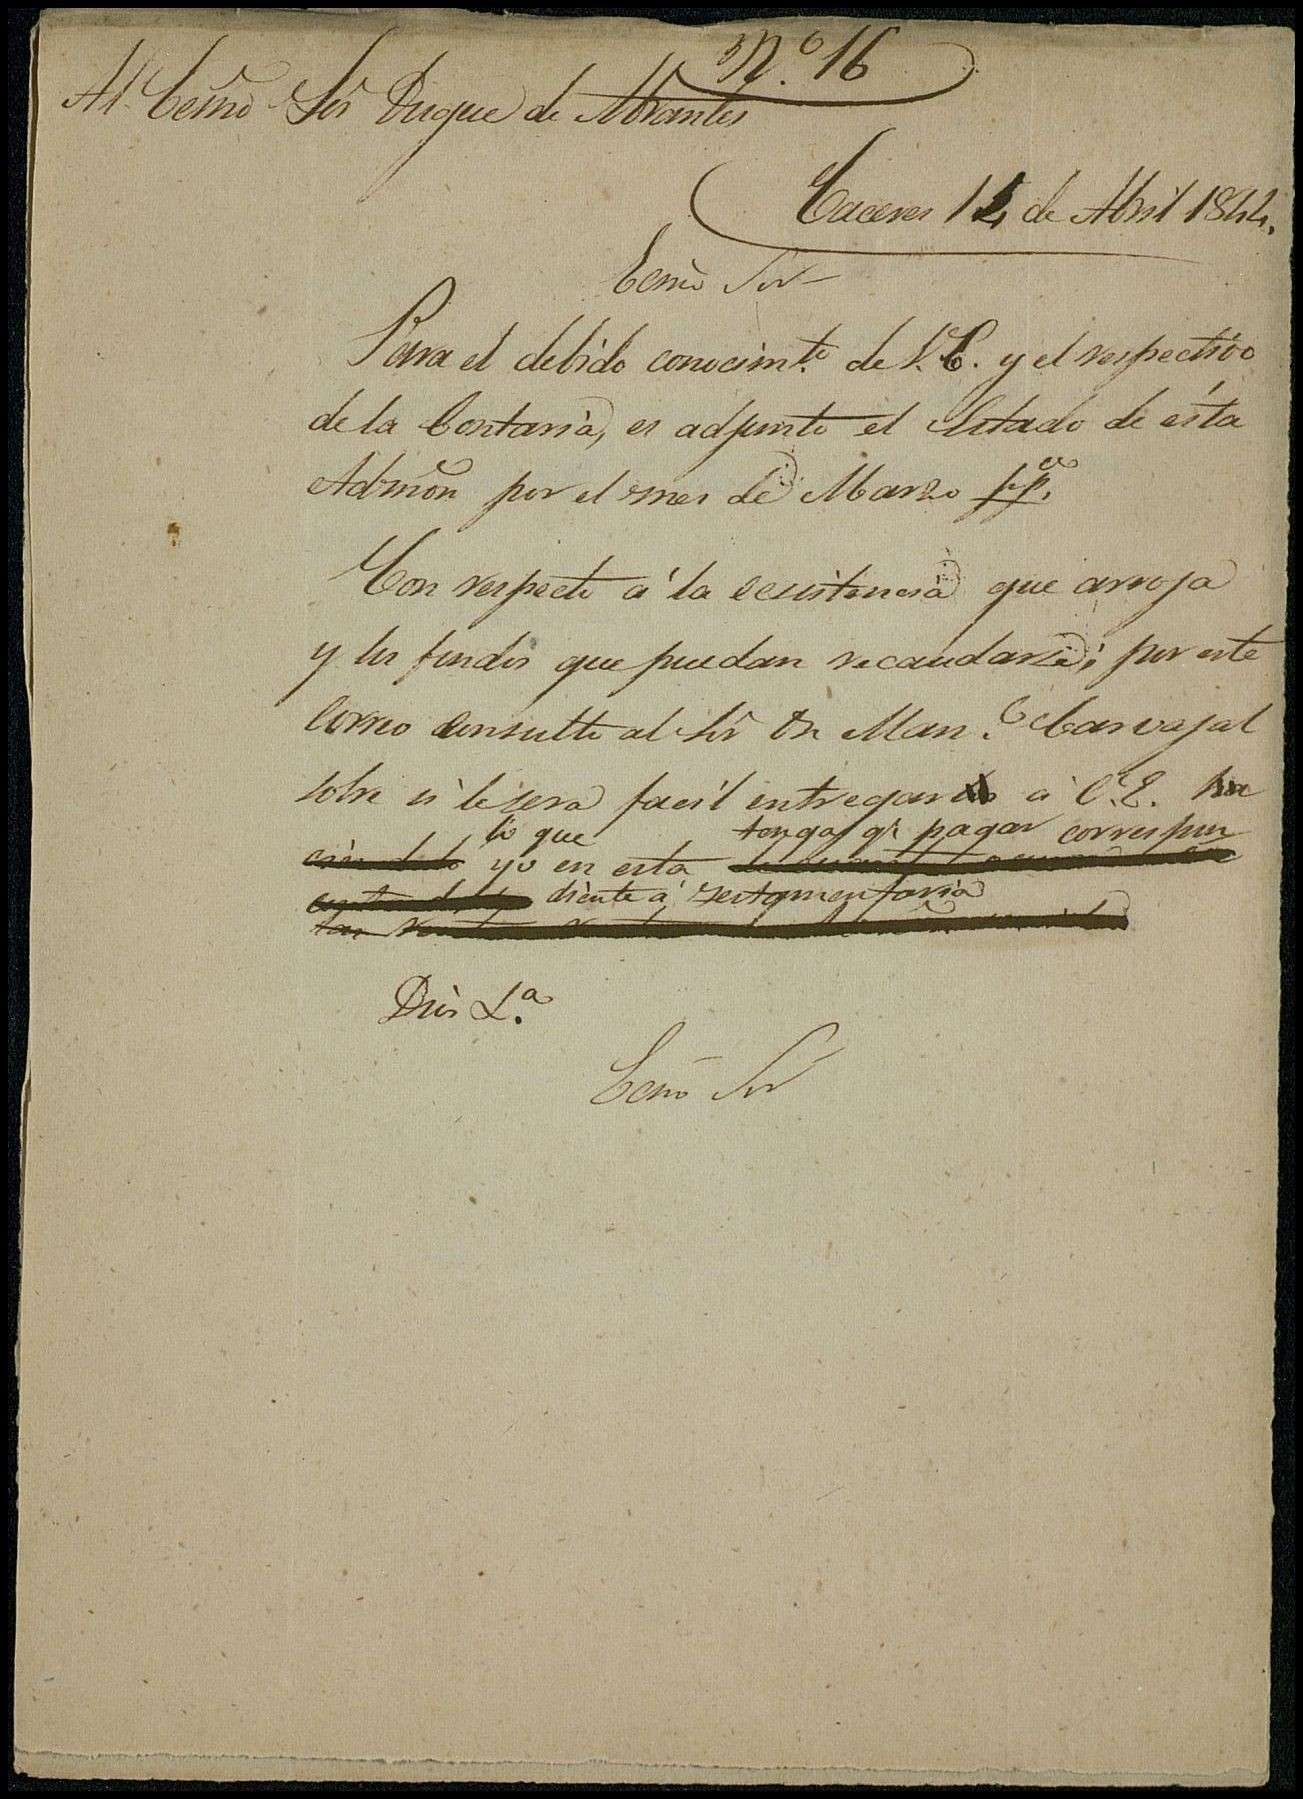 Nº 16
Al Ecmo Sor Duque de Abrantes
Caceres 14 de Abril 1844.
Ecmo Sor
Para el debido conocimto. de V. E. y el respectivo
de la Contaria, es adjunto el Estado de ésta
Admon por el mes de Marzo p.pº.
Con respecto á la ecsistencia que arroja
y los fondos que puedan recaudarse, por este
Correo consulto al Sor Dn Manl. Carvajal
sobre si le sera facil entregar á V. E.
lo que tenga qe pagar correspon
yo en esta
diente á Testamentaria
Dios La.
Ecmo Sor